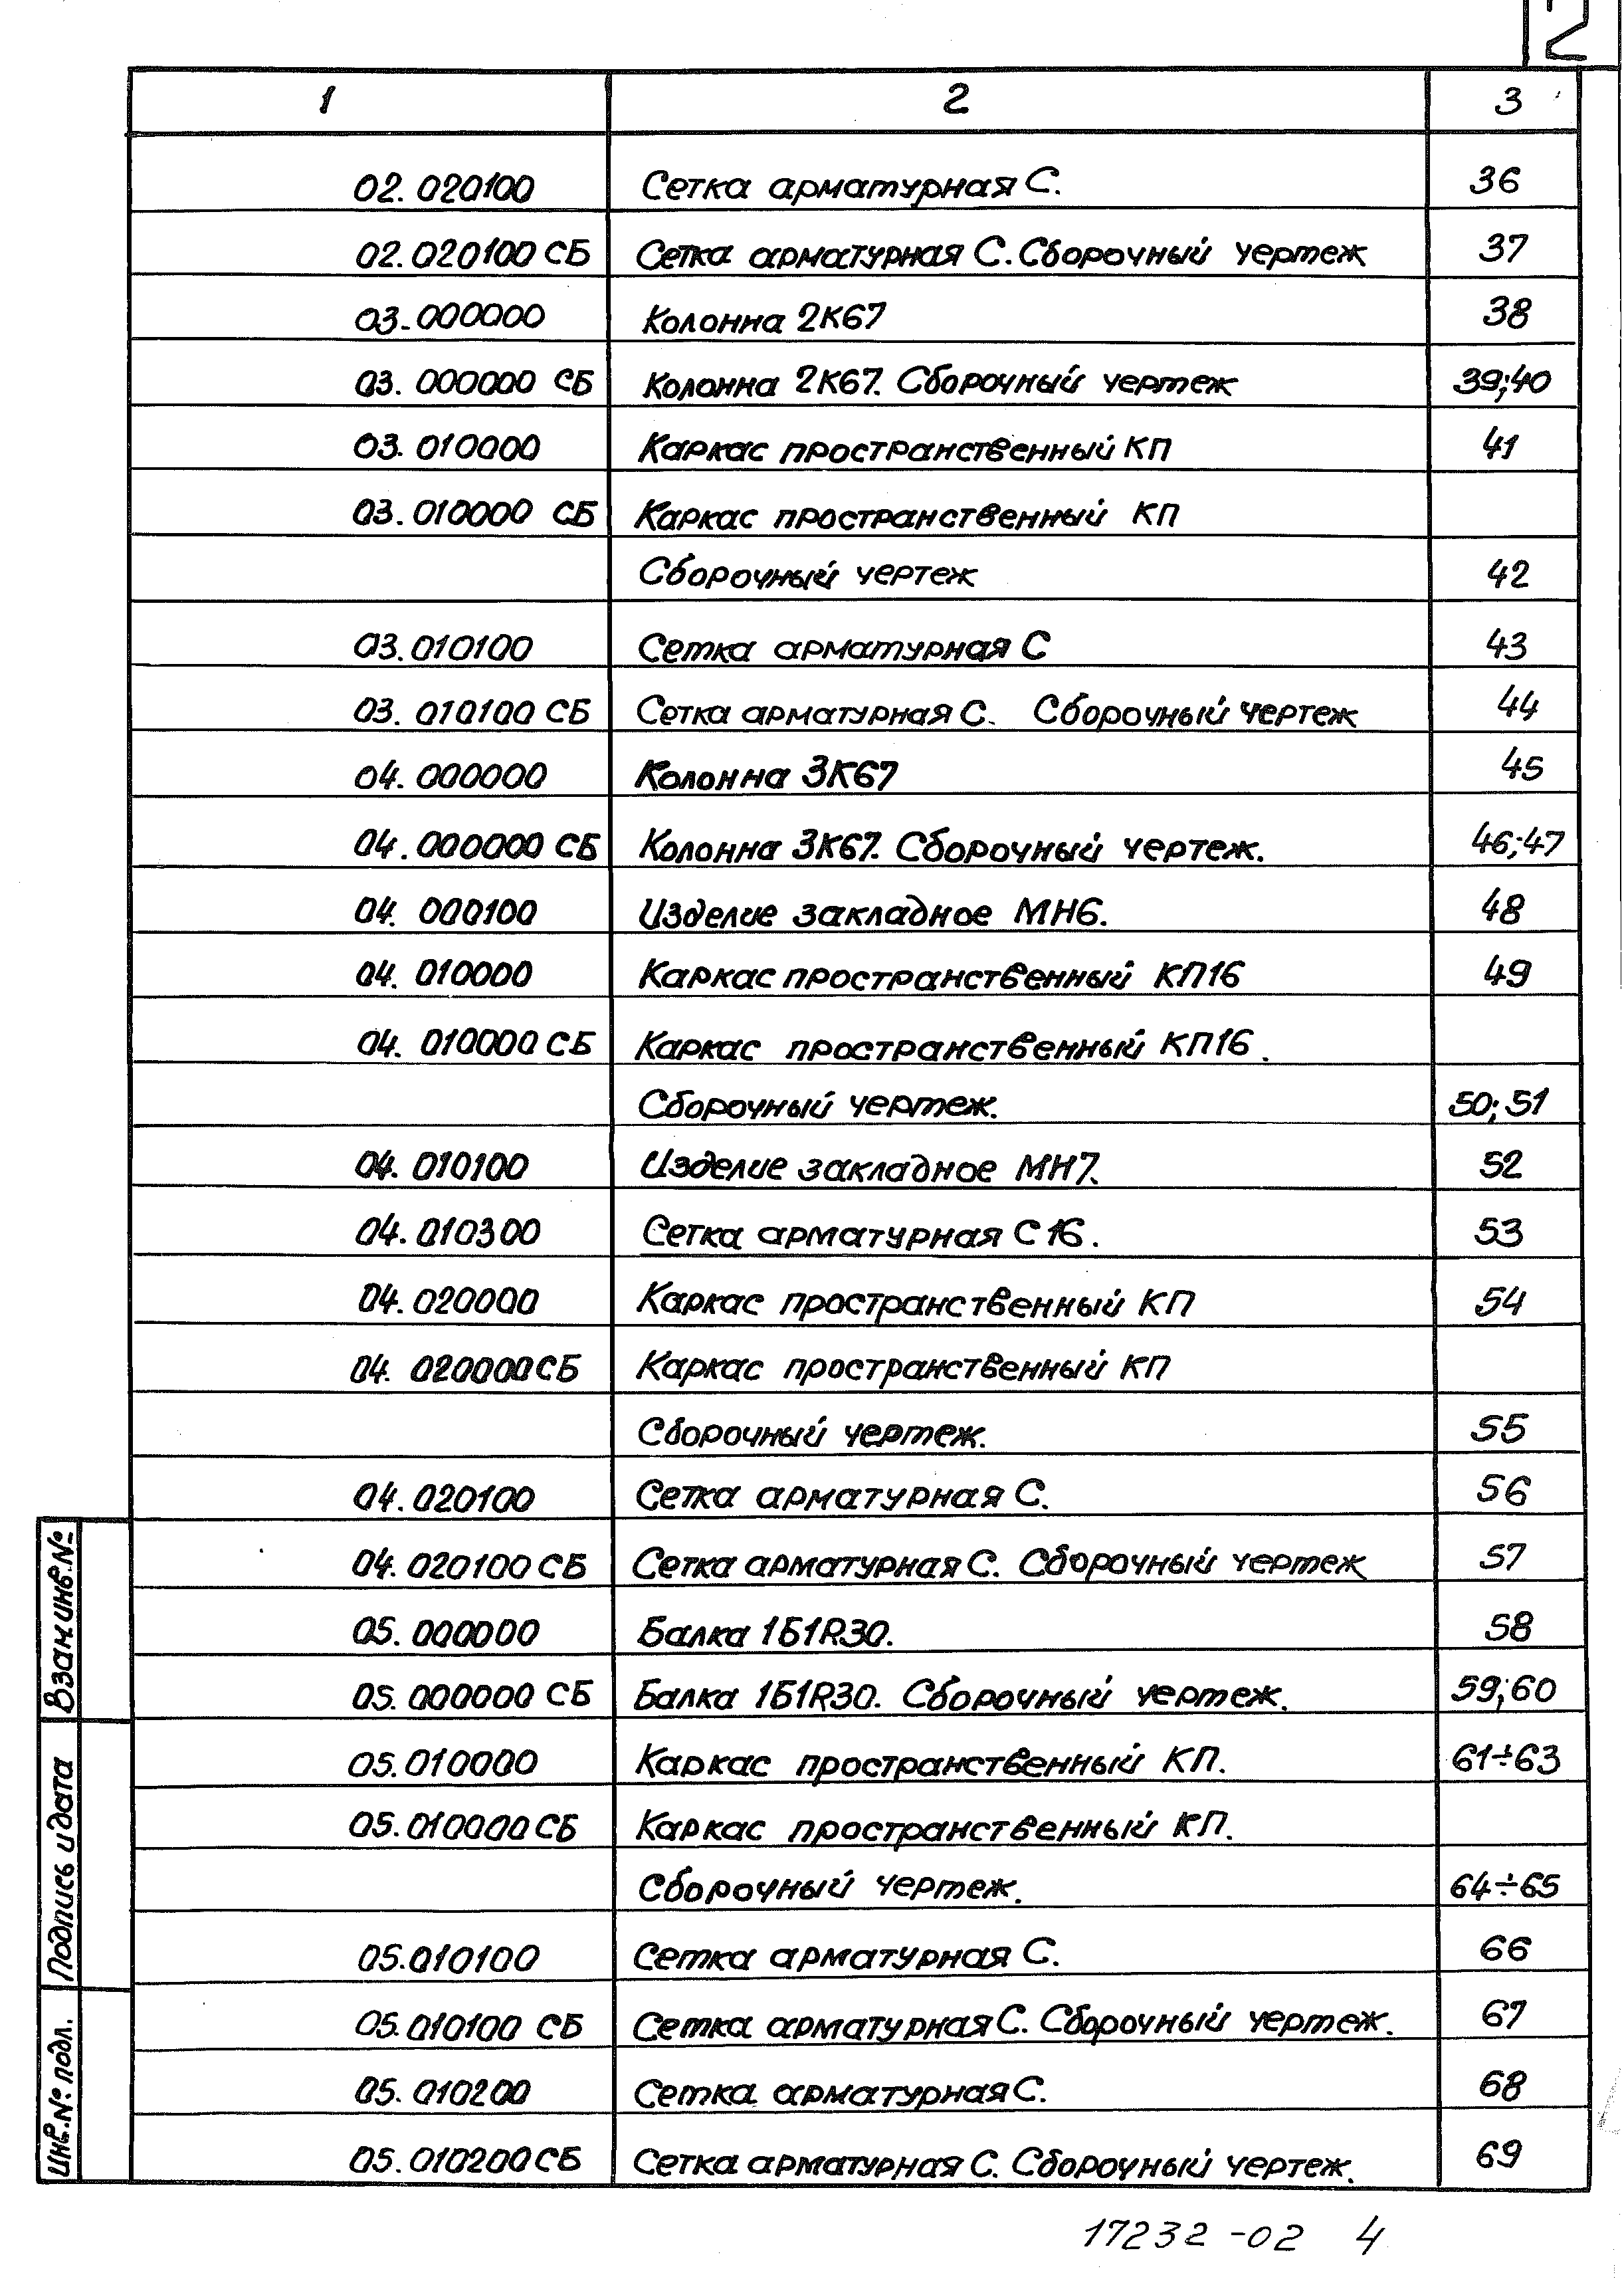 1 2 3
02.020100 Сетка арматурная С. 36
02.020100 СБ Сетка арматурная С. Сборочный чертеж 37
03.000000 Колонна 2К67 38
03.000000 СБ Колонна 2К67. Сборочный чертеж 39;40
03.010000 Каркас пространственный КП 41
03.010000 СБ Каркас пространственный КП
Сборочный чертеж 42
03.010100 Сетка арматурная С 43
03.010100 СБ Сетка арматурная С. Сборочный чертеж 44
04.000000 Колонна 3К67 45
04.000000 СБ Колонна 3К67. Сборочный чертеж. 46;47
04.000100 Изделие закладное МН6. 48
04.010000 Каркас пространственный КП16 49
04.010000 СБ Каркас пространственный КП16.
Сборочный чертеж. 50;51
04.010100 Изделие закладное МН7. 52
04.010300 Сетка арматурная С16. 53
04.020000 Каркас пространственный КП 54
04.020000 СБ Каркас пространственный КП
Сборочный чертеж. 55
04.020100 Сетка арматурная С. 56
04.020100 СБ Сетка арматурная С. Сборочный чертеж 57
05.000000 Балка 1Б1R30. 58
05.000000 СБ Балка 1Б1R30. Сборочный чертеж. 59;60
05.010000 Каркас пространственный КП. 61÷63
05.010000 СБ Каркас пространственный КП.
Сборочный чертеж. 64÷65
05.010100 Сетка арматурная С. 66
05.010100 СБ Сетка арматурная С. Сборочный чертеж. 67
05.010200 Сетка арматурная С. 68
05.010200 СБ Сетка арматурная С. Сборочный чертеж. 69
Взам.инв.№
Подпись и дата
Инв.№ подл.
17232-02 4